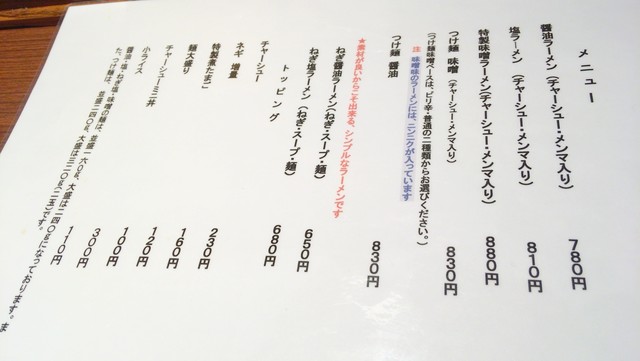 メニュー
醤油ラーメン (チャーシュー・メンマ入り) 780円
塩ラーメン (チャーシュー・メンマ入り) 810円
特製味噌ラーメン(チャーシュー・メンマ入り) 880円
つけ麺 味噌 (チャーシュー・メンマ入り) 830円
(つけ麺味噌ベースは、ピリ辛・普通の二種類からお選びください。)
注 味噌味のラーメンには、ニンニクが入っています
つけ麺 醤油 830円
★素材が良いからこそ出来る、シンプルなラーメンです
ねぎ醤油ラーメン(ねぎ・スープ・麺) 650円
ねぎ塩ラーメン (ねぎ・スープ・麺) 680円
トッピング
チャーシュー 230円
ネギ 増量 160円
特製煮たまご 120円
麺大盛り 100円
チャーシューミニ丼 300円
小ライス 110円
醤油・塩・ねぎ塩・味噌の麺は、並盛一六〇g、大盛は二四〇gになっております。ま
た、つけ麺は、並盛二四〇g、大盛は三二〇g(二玉)です。